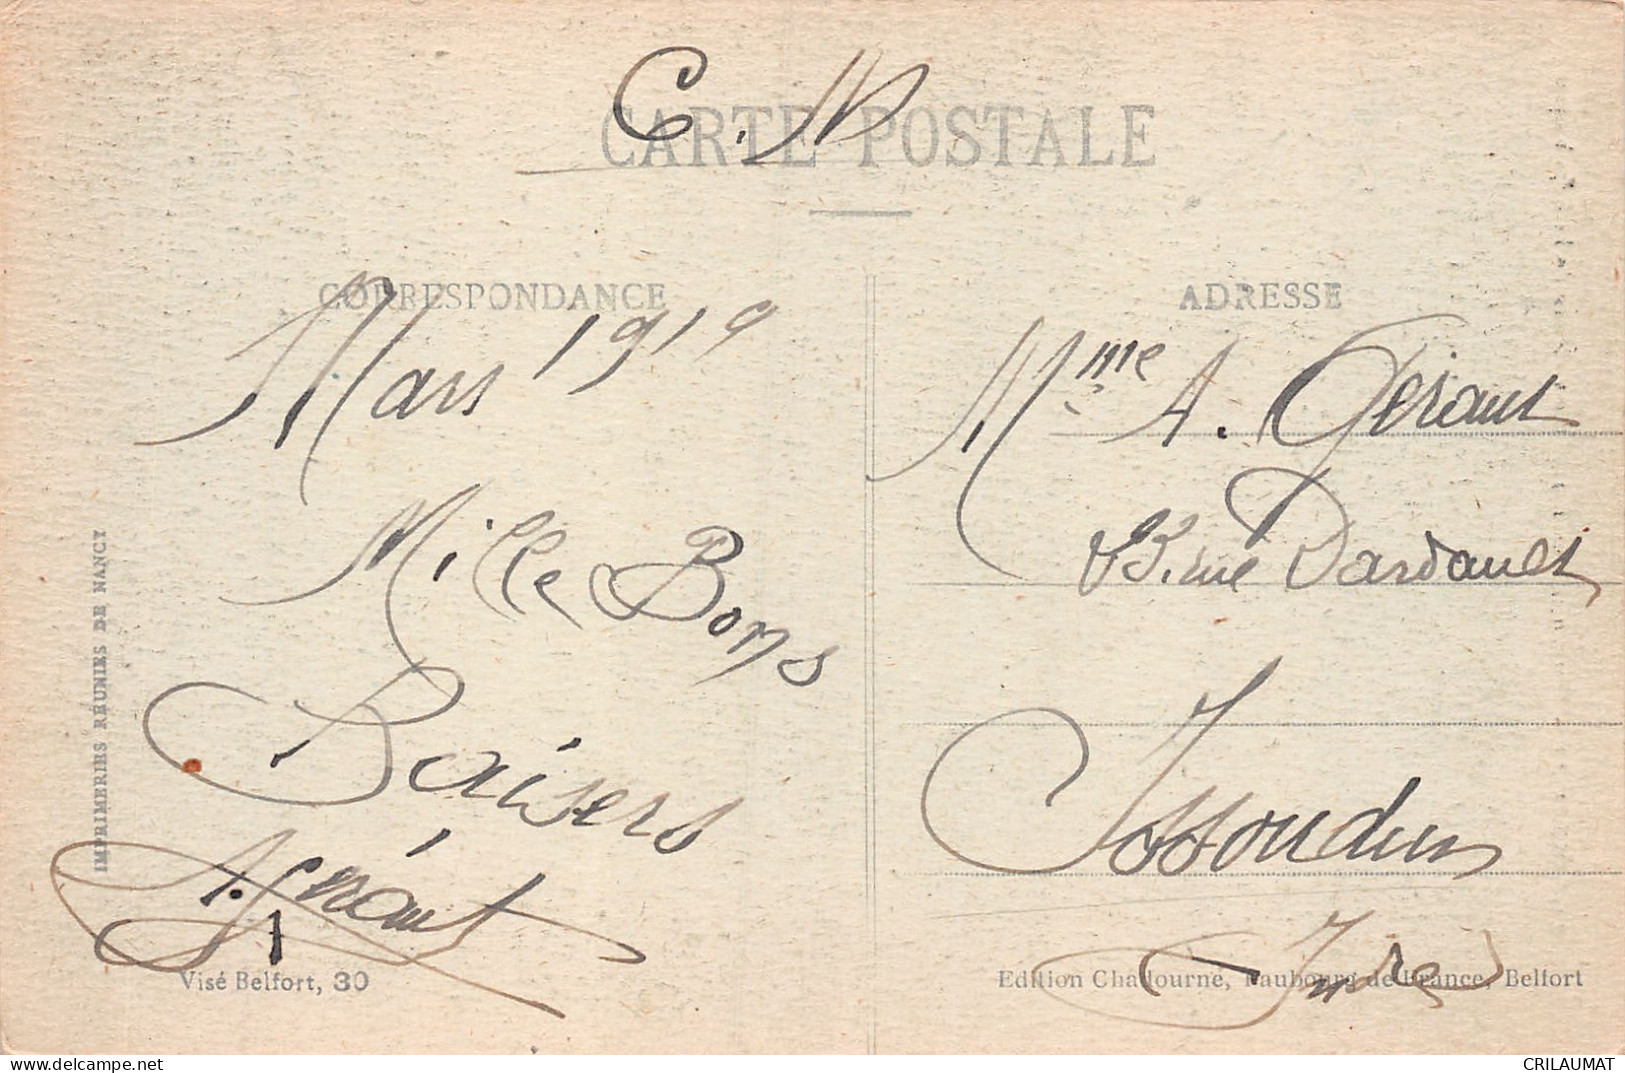 C. M
CARTE POSTALE
CORRESPONDANCE
Mars 1919
Mille Bons
Baisers
IMPRIMERIES RÉUNIES DE NANCY
Visé Belfort, 30
ADRESSE
Mme A. Géraut
rue Dardault
Issoudun
Indre
Edition Chadourne, Faubourg de France, Belfort
CRILAUMAT
delcampe.net